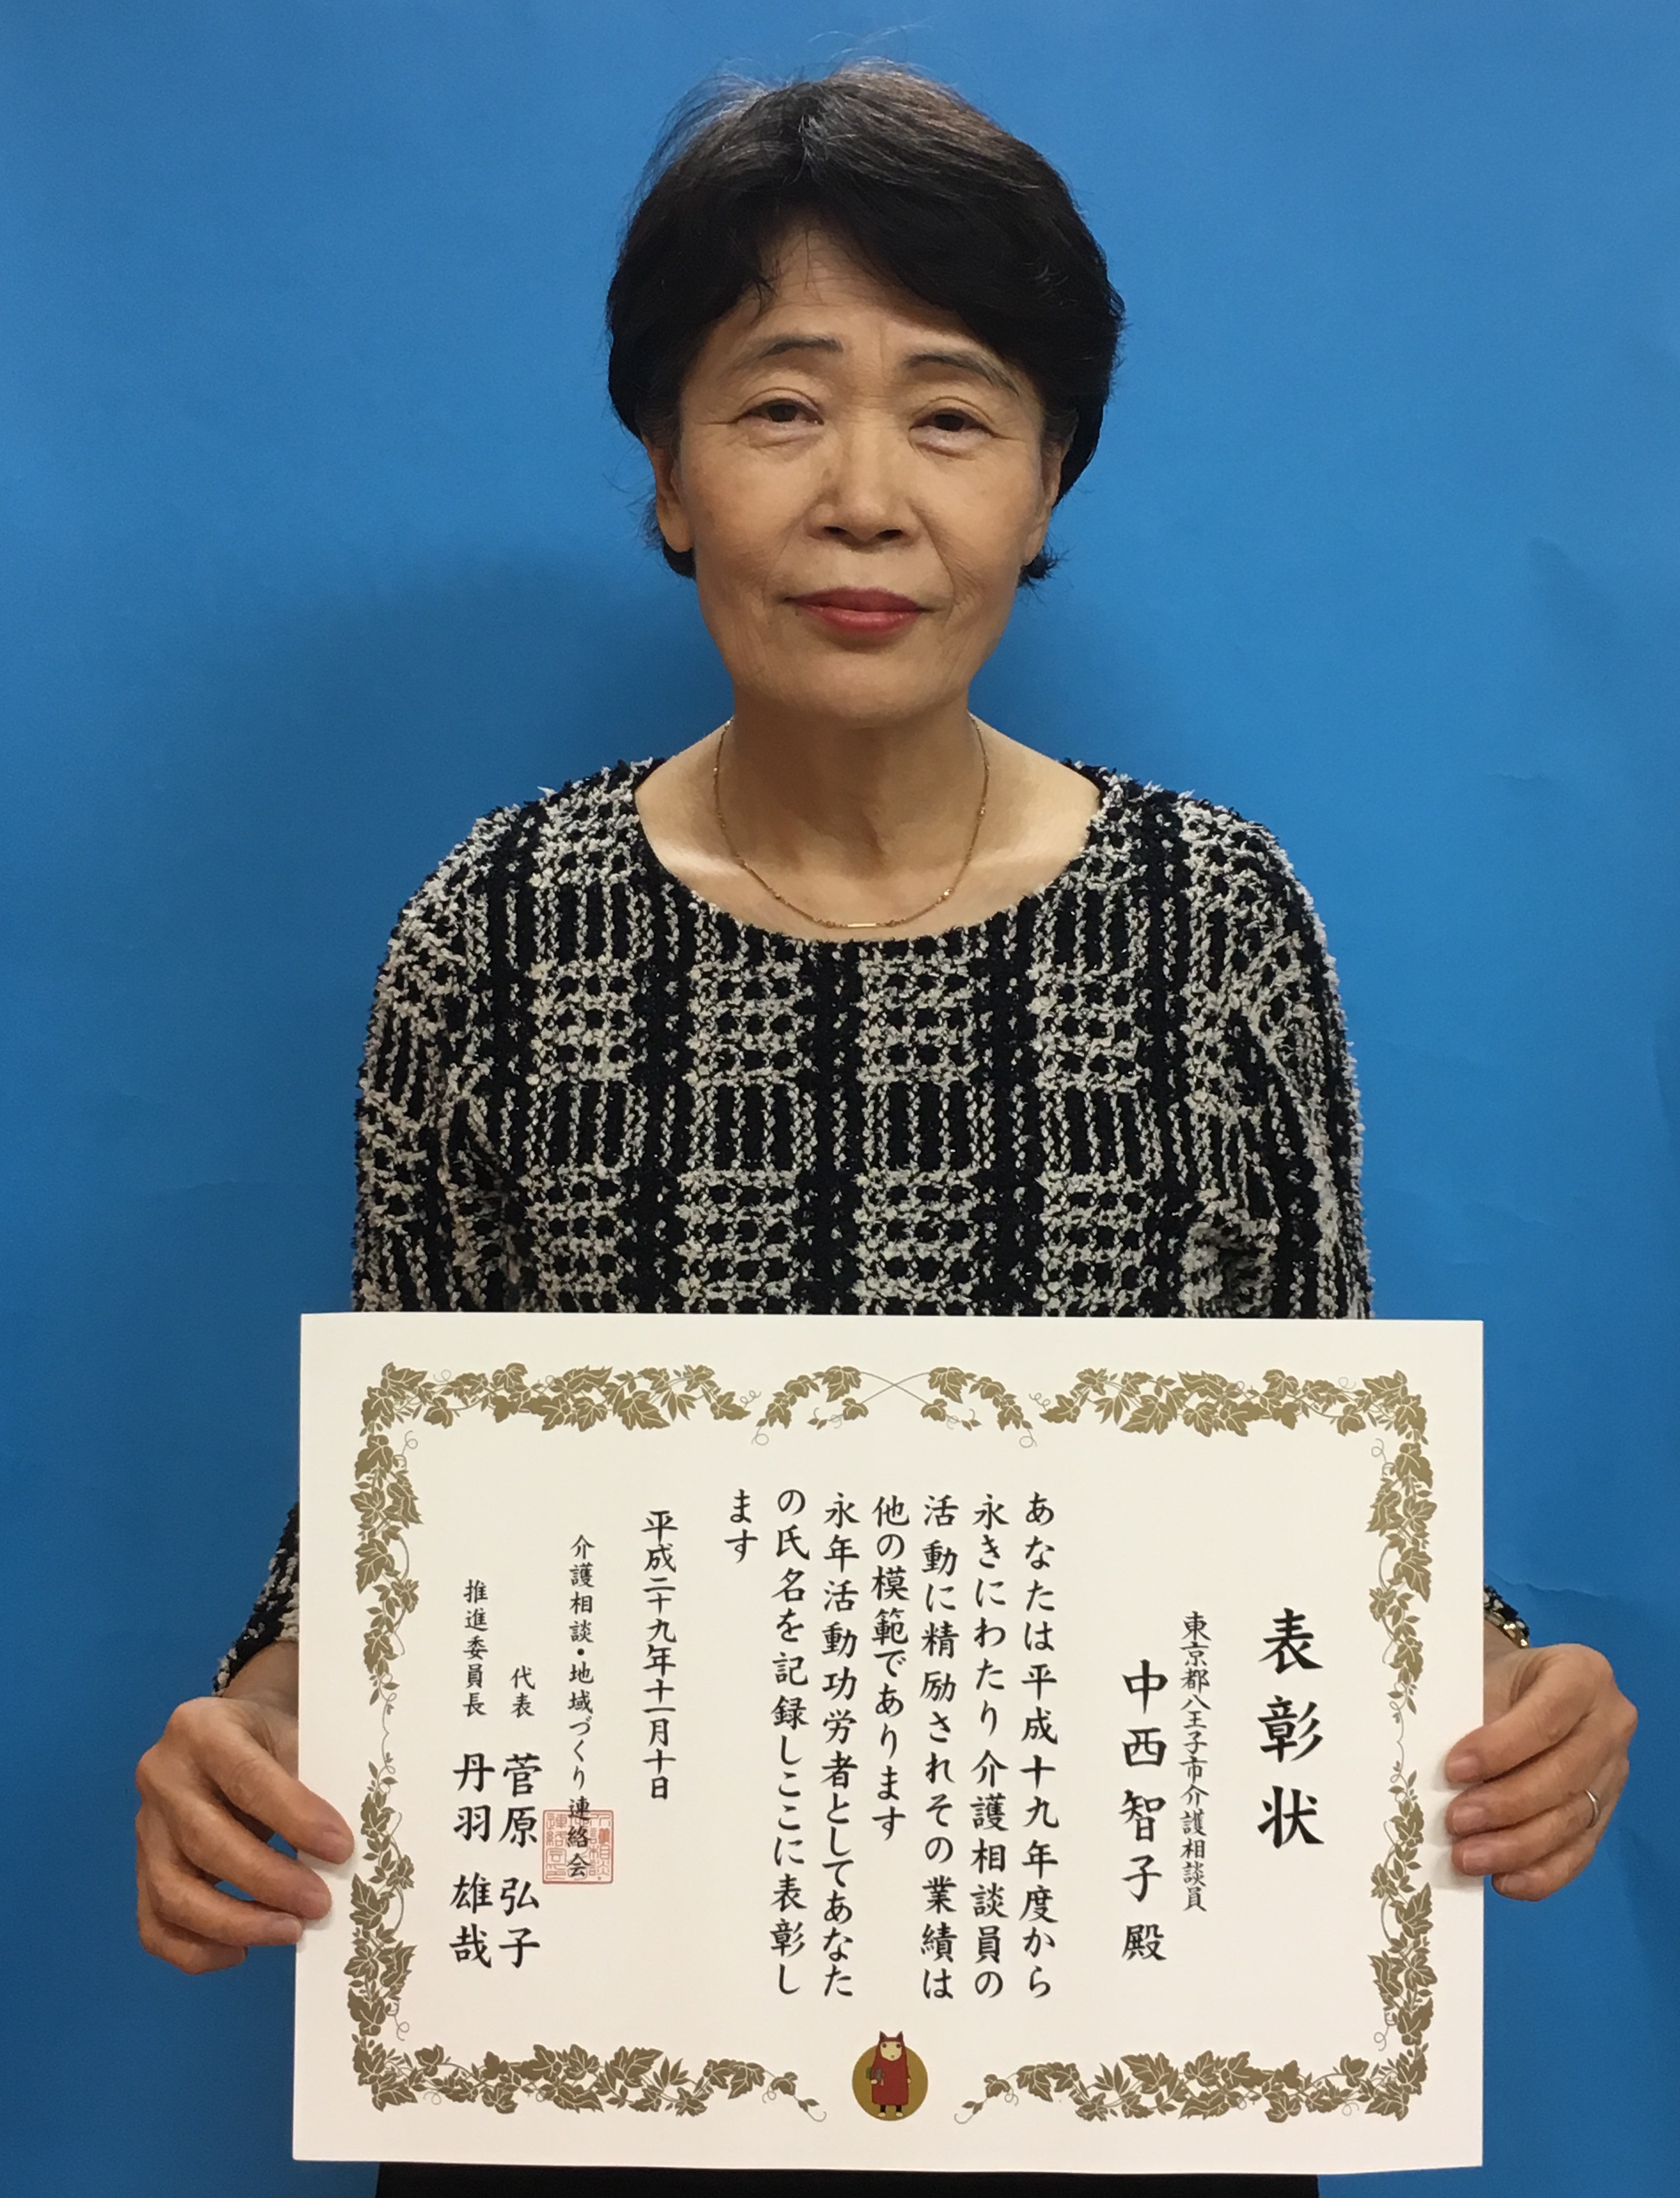 表彰状
東京都八王子市介護相談員
中西智子殿
あなたは平成十九年度から
永きにわたり介護相談員の
活動に精励されその業績は
他の模範であります
永年活動功労者としてあなた
の氏名を記録しここに表彰し
ます
平成二十九年十一月十日
介護相談・地域づくり連絡会
代表 菅原弘子
推進委員長 丹羽雄哉